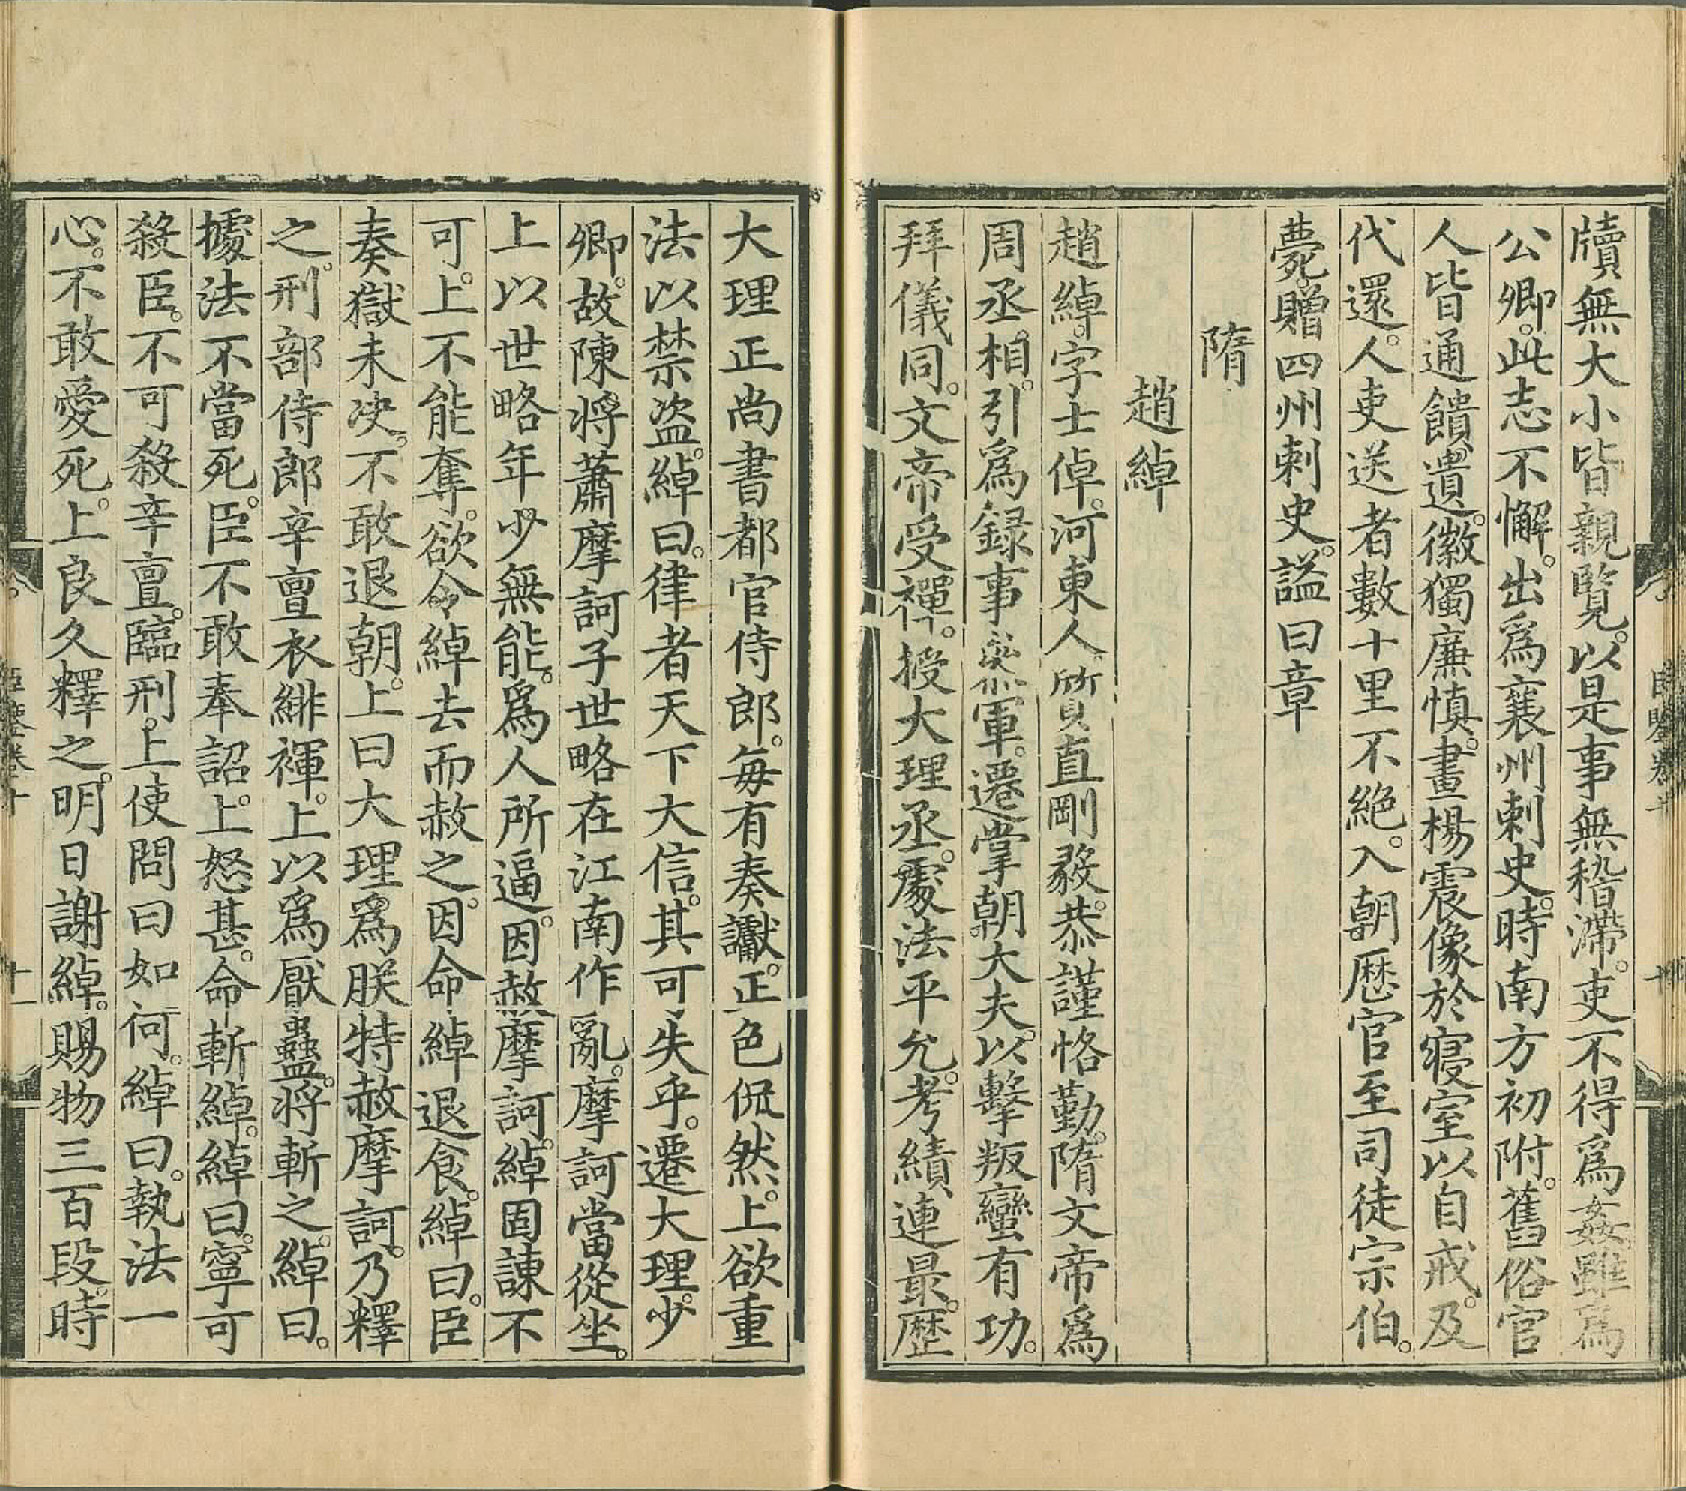 牘無大小皆親覽。以是事無稽滯。吏不得爲姦雖爲
公卿。此志不懈。出爲襄州刺史。時南方初附。舊俗官
人皆通饋遺。徽獨廉慎。畫楊震像於寢室以自戒。及
代還。人吏送者數十里不絶。入朝歷官至司徒宗伯。
薨。贈四州刺史。謚曰章
隋
趙綽
趙綽。字士倬。河東人。質直剛毅。恭謹恪勤。隋文帝爲
周丞相。引爲録事參軍。遷掌朝大夫。以擊叛蠻有功。
拜儀同。文帝受禪。授大理丞。處法平允。考績連最。歷
大理正尚書都官侍郎。每有奏讞。正色侃然。上欲重
法以禁盜。綽曰。律者天下大信。其可失乎。遷大理少
卿。故陳將蕭摩訶子世略在江南作亂。摩訶當從坐。
上以世略年少無能。爲人所逼。因赦摩訶。綽固諫不
可。上不能奪。欲令綽去而赦之。因命綽退食。綽曰。臣
奏獄未决。不敢退朝。上曰大理爲朕特赦摩訶。乃釋
之。刑部侍郎辛亶衣緋褌。上以爲厭蠱。將斬之。綽曰。
據法不當死。臣不敢奉詔。上怒甚。命斬綽。綽曰。寧可
殺臣。不可殺辛亶。臨刑。上使問曰如何。綽曰。執法一
心。不敢愛死。上良久釋之。明日謝綽。賜物三百段。時
十一